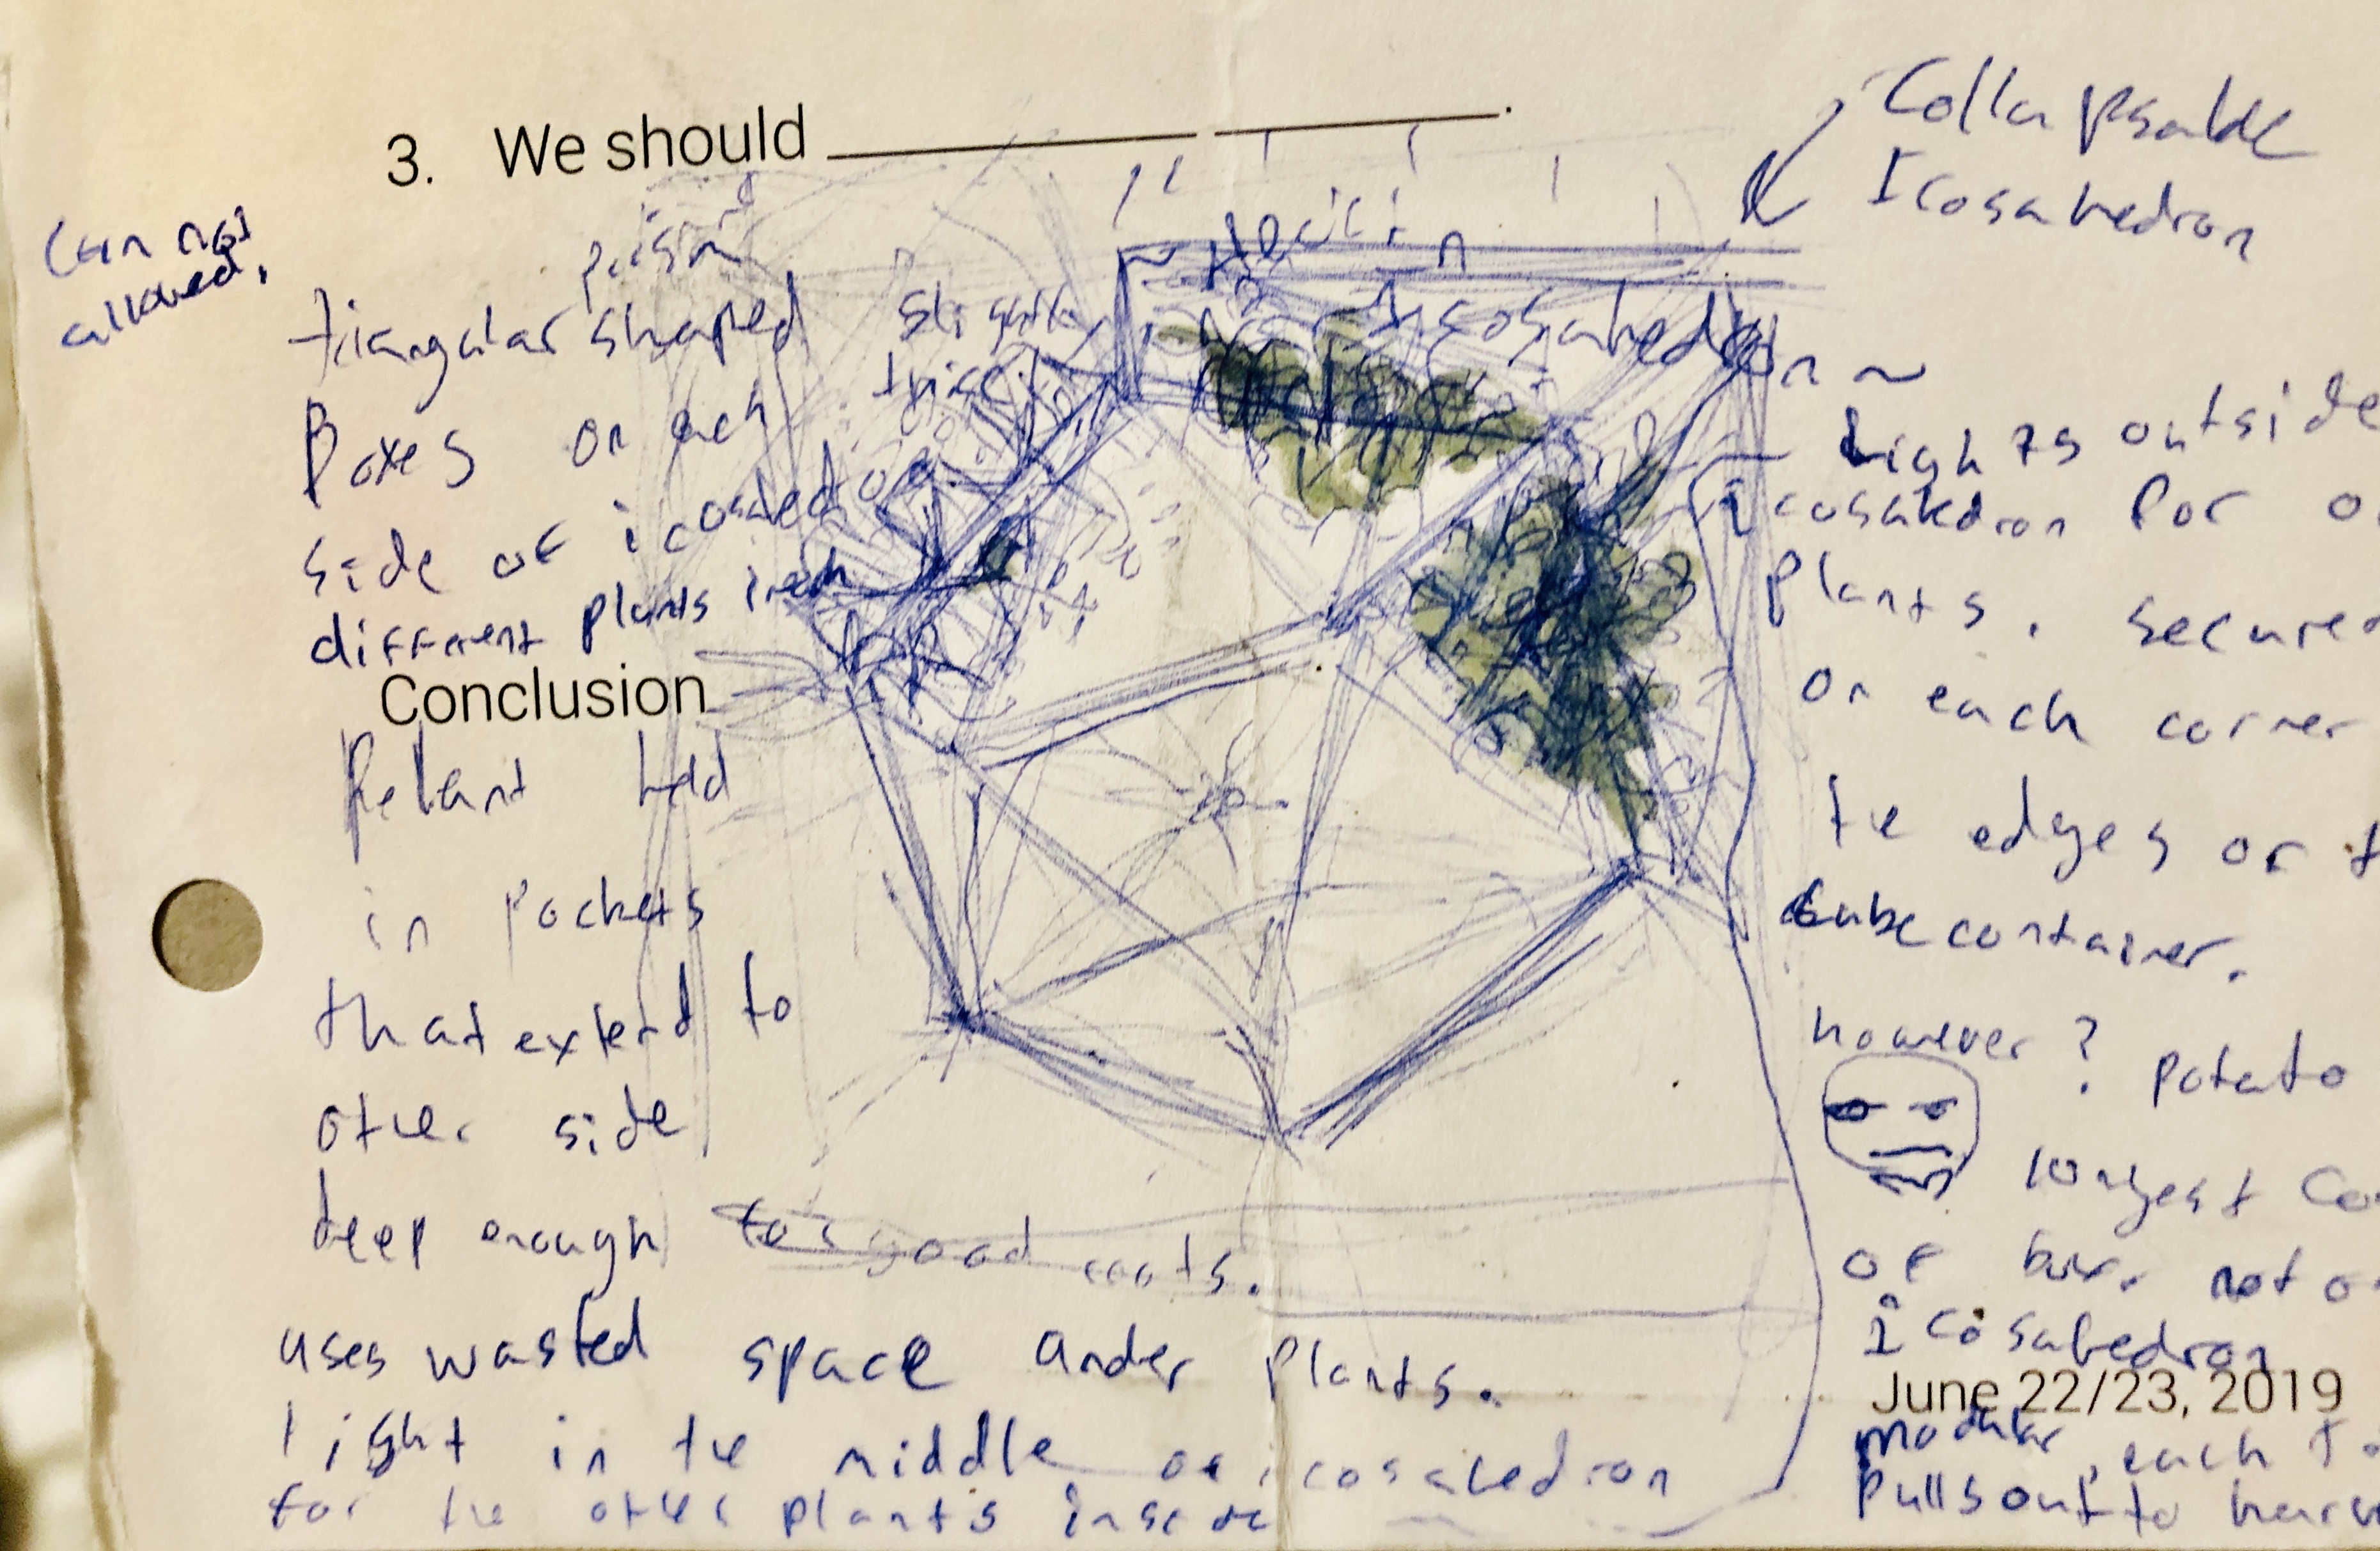 3. We should
Collapsable
Icosahedron
Can not
allowed.
prism
triangular shaped
Boxes on each
side of icosahedron
different plants in each
Icosahedron
Lights outside
icosahedron for
plants. Secured
on each corner
the edges or
cube container.
however? potato
longest
of box. not
icosahedron
Conclusion
held
in pockets
that extend to
other side
deep enough for good roots.
uses wasted space under plants.
light in the middle of icosahedron
for the other plants inside
June 22/23, 2019
modular, each
Pulls out to